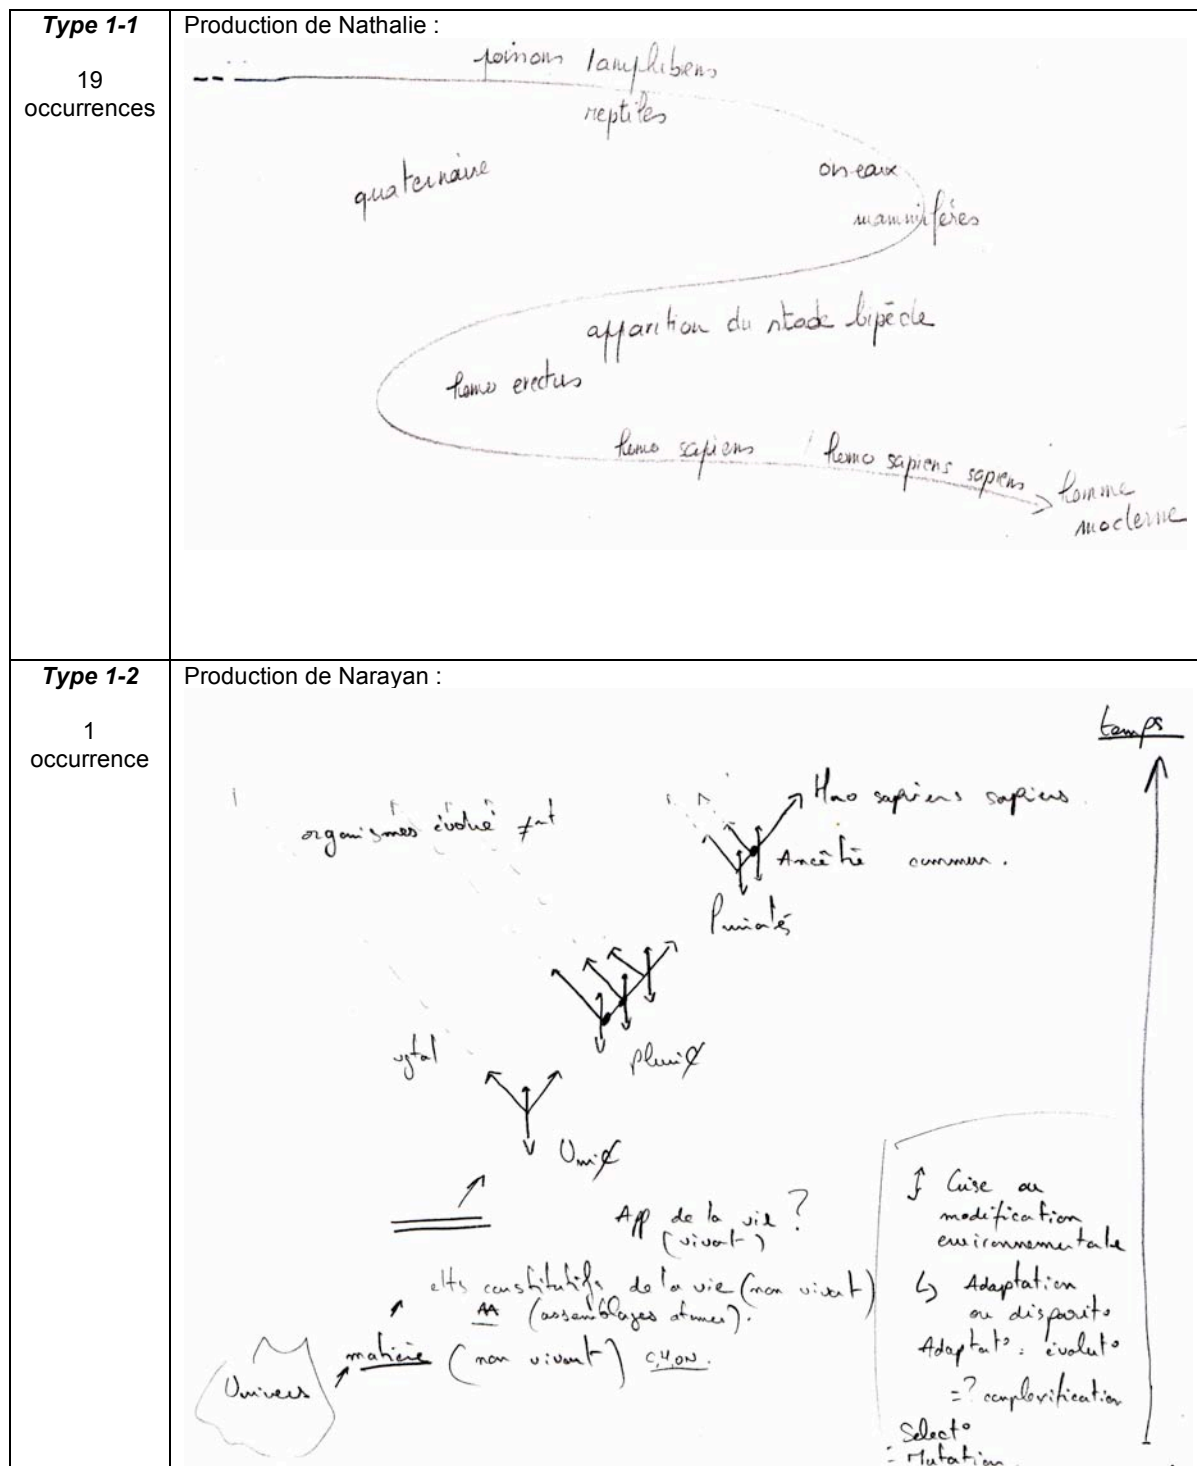 Type 1-1
19
occurrences
Production de Nathalie :
poissons / amphibiens
reptiles
quaternaire
oiseaux
mammifères
apparition du stade bipède
homo erectus
homo sapiens / homo sapiens sapiens
homme
moderne
Type 1-2
1
occurrence
Production de Narayan :
temps
Homo sapiens sapiens
organismes évolué ≠nt
Ancêtre commun.
Primates
vgtal
pluri¢
Uni¢
App de la vie ?
(vivant)
elts constitutifs de la vie (non vivant)
AA (assemblages atomes).
matière (non vivant) C,H,O,N.
Univers
↕ Crise ou
modification
environnementale
↳ Adaptation
ou disparit°
Adaptat° = évolut°
=? complexification
Select°
= Mutation